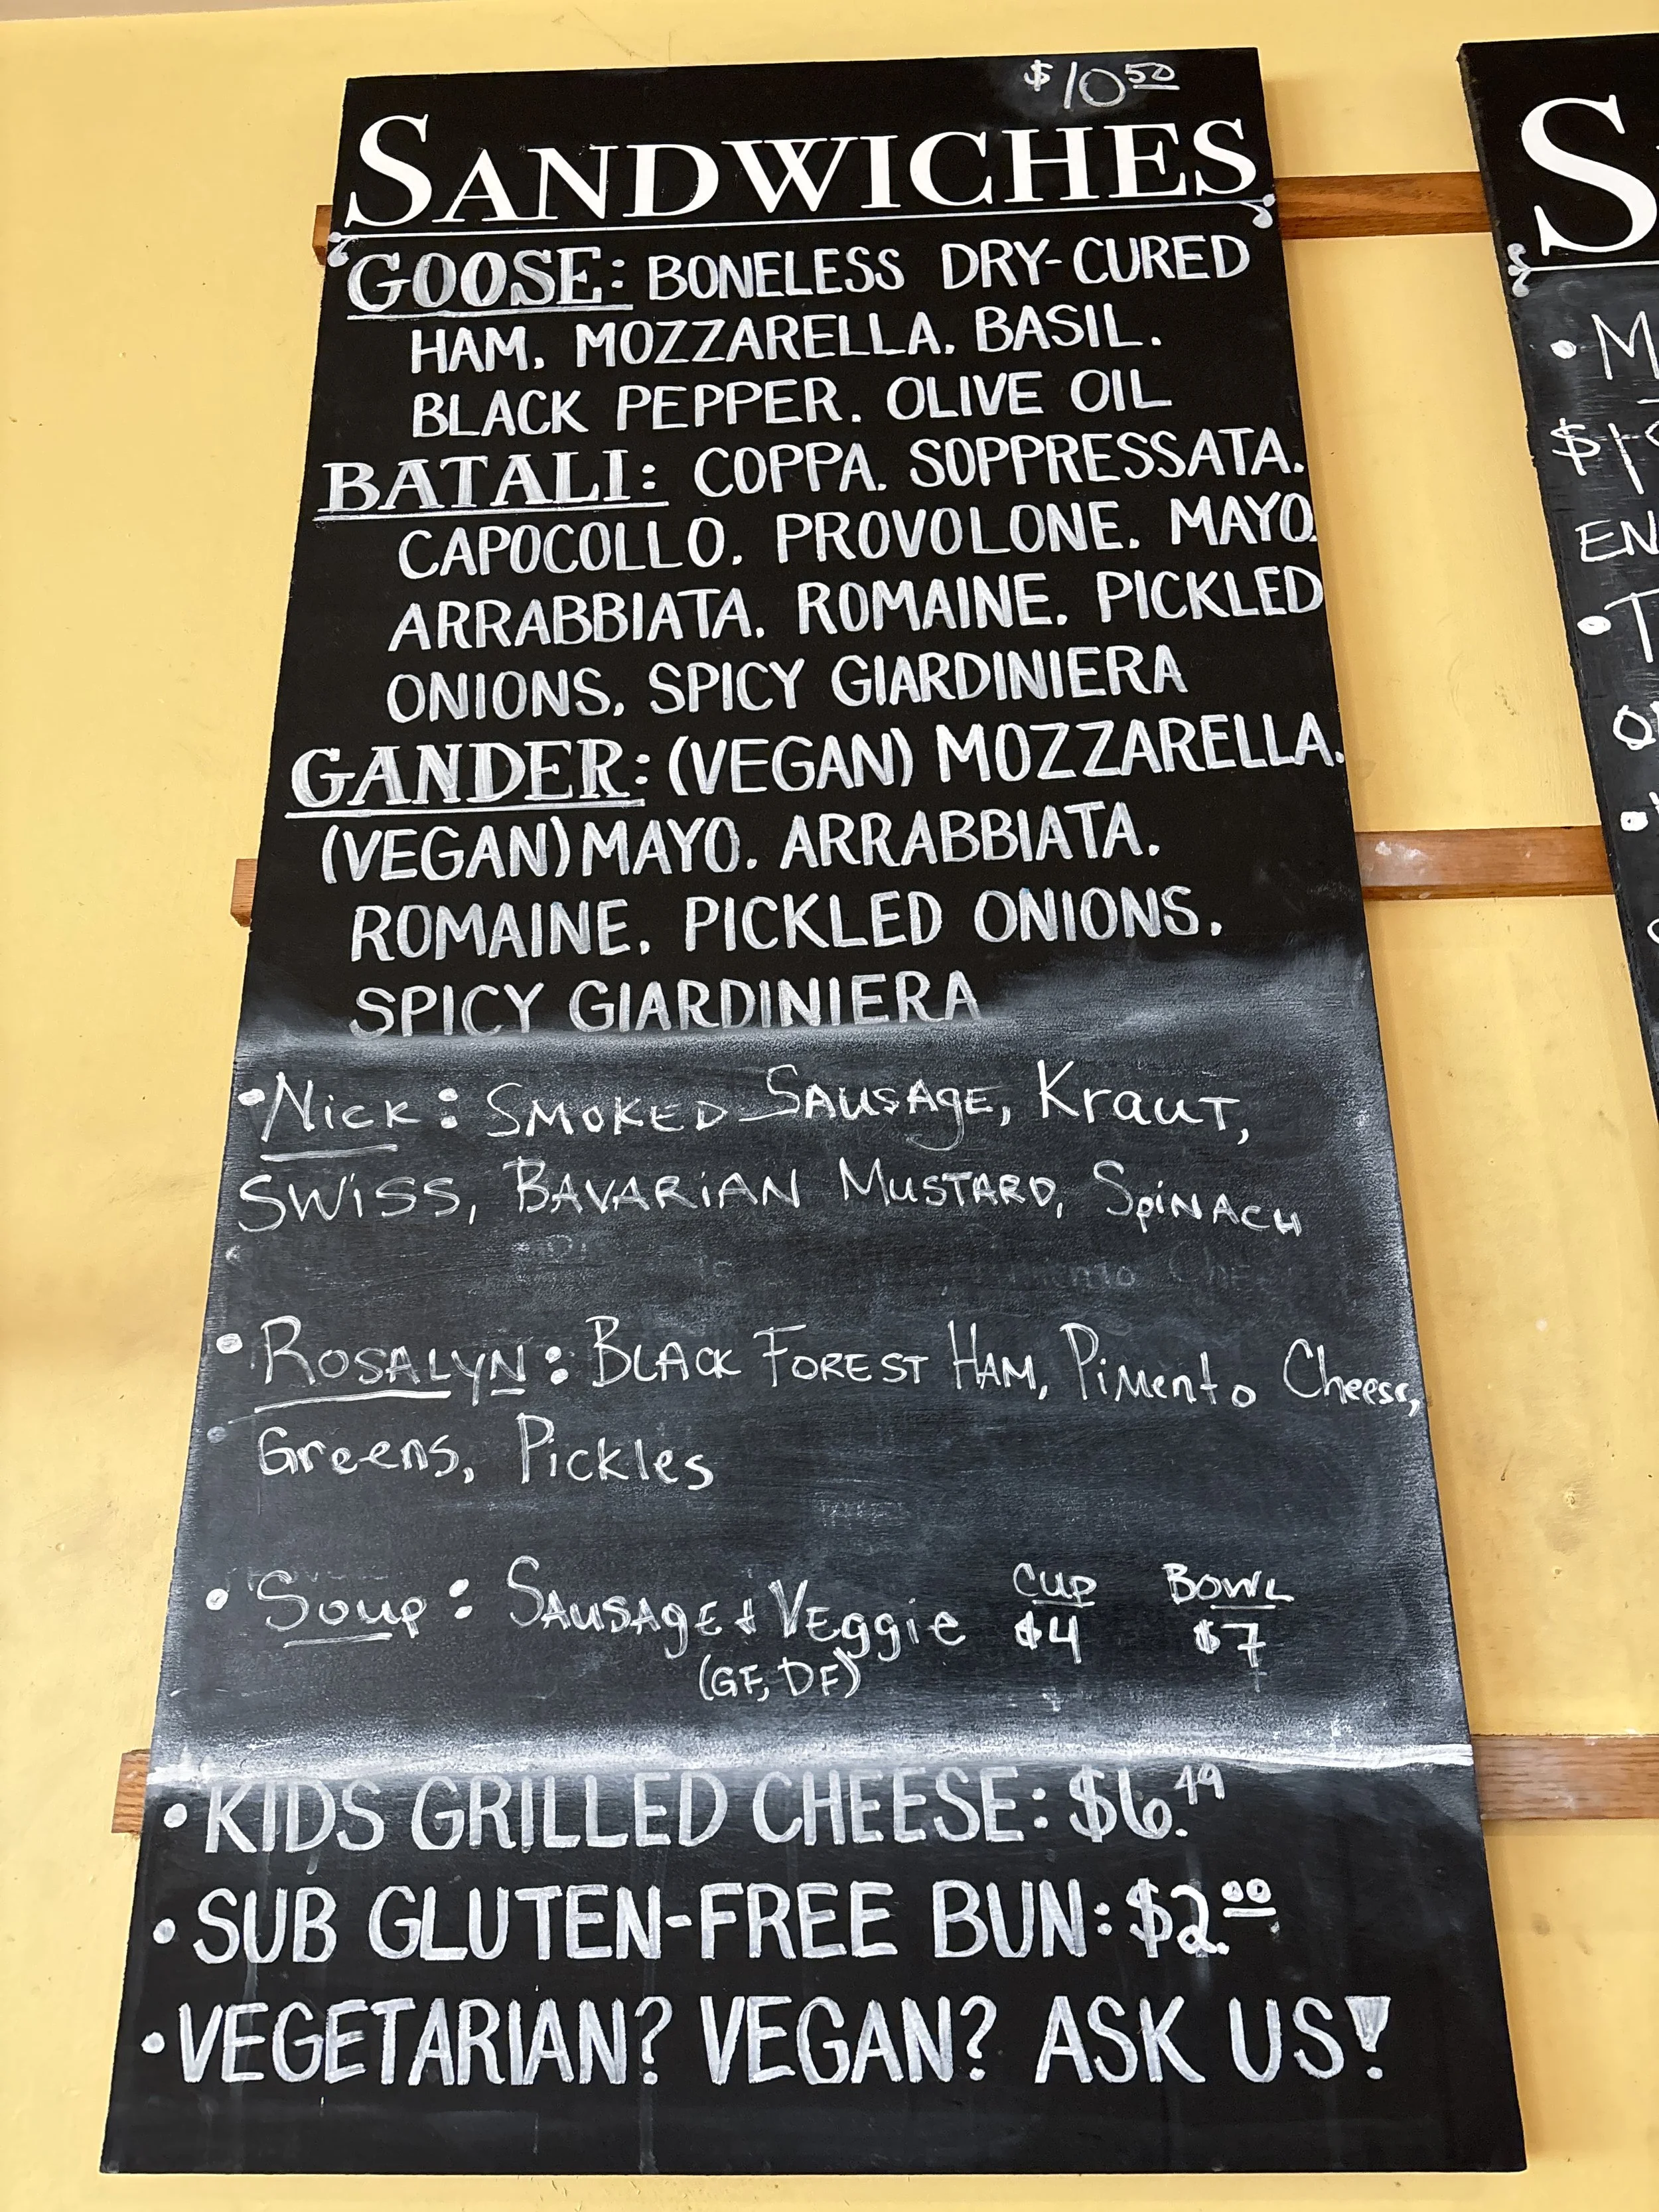 $10.50
SANDWICHES
GOOSE: BONELESS DRY-CURED
HAM. MOZZARELLA. BASIL.
BLACK PEPPER. OLIVE OIL
BATALI: COPPA. SOPPRESSATA.
CAPOCOLLO. PROVOLONE. MAYO.
ARRABBIATA. ROMAINE. PICKLED
ONIONS. SPICY GIARDINIERA
GANDER: (VEGAN) MOZZARELLA.
(VEGAN) MAYO. ARRABBIATA.
ROMAINE. PICKLED ONIONS.
SPICY GIARDINIERA
• Nick: SMOKED SAUSAGE, Kraut,
SWiSS, BAVARiAN MUSTARD, SPiNACH
• ROSALYN: BLACK FOREST HAM, PiMento Cheese,
Greens, Pickles
• Soup: SAUSAGE + VEggie CUP BOWL
$4 $7
(GF, DF)
• KIDS GRILLED CHEESE: $6.49
• SUB GLUTEN-FREE BUN: $2.00
• VEGETARIAN? VEGAN? ASK US!
S
• M
$1
EN
• T